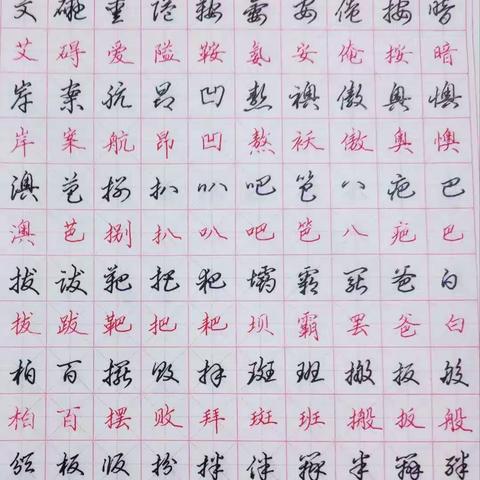 艾碍愛隘鞍氨安俺按暗
艾碍爱隘鞍氨安俺按暗
岸案航昂凹熬襖傲奥懊
岸案航昂凹熬袄傲奥懊
澳芭捌扒叭吧笆八疤巴
澳芭捌扒叭吧笆八疤巴
拔跋靶把耙壩霸罷爸白
拔跋靶把耙坝霸罢爸白
柏百擺敗拜斑班搬扳般
柏百摆败拜斑班搬扳般
頒板版扮拌伴瓣半辦絆